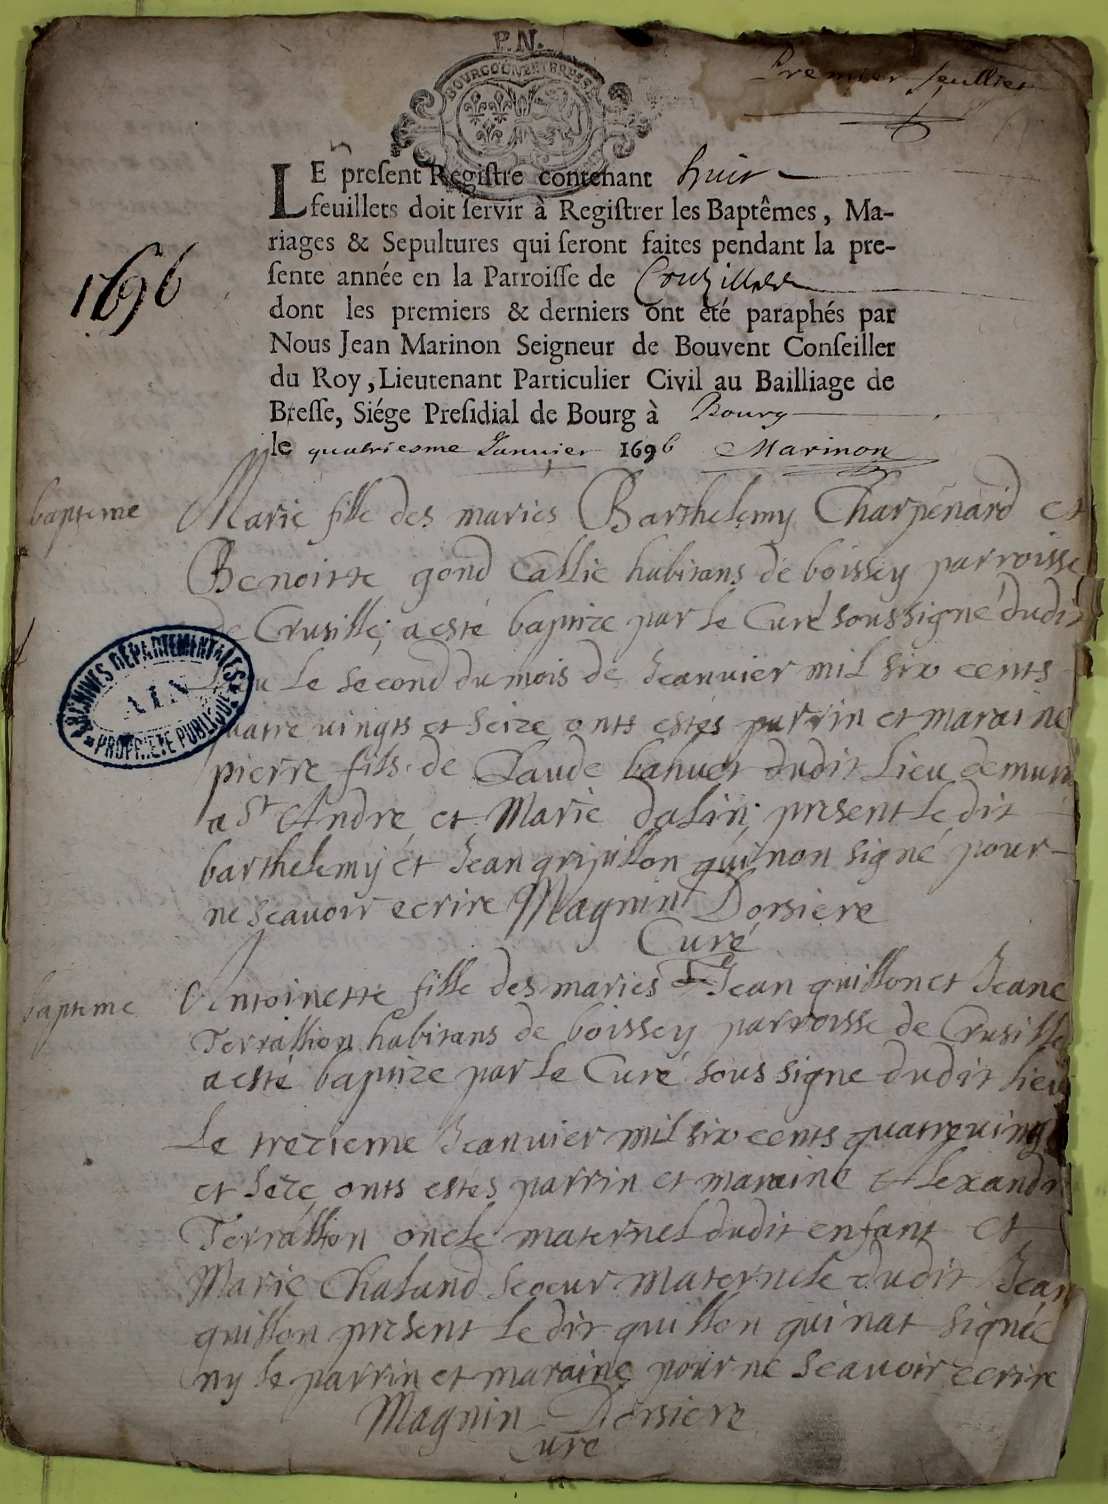 P.N.
BOURGOGNE ET BRESSE
Premier feulliet
LE preſent Regiſtre contenant huit
feuillets doit ſervir à Regiſtrer les Baptêmes, Ma-
riages & Sepultures qui ſeront faites pendant la pre-
ſente année en la Parroiſſe de Cruzilles
1696
dont les premiers & derniers ont été paraphés par
Nous Jean Marinon Seigneur de Bouvent Conſeiller
du Roy, Lieutenant Particulier Civil au Bailliage de
Breſſe, Siége Preſidial de Bourg à Bourg
le quatriesme Janvier 1696 Marinon
bapteme
Marie fille des maries Barthelemy Charpenard et
Benoitte gond Callie habitans de boissey parroisse
de Crusille; a esté baptize par le Curé soussigné dudit
lieu le second du mois de Jeanvier mil six cents
quatre vingts et seize onts estés parrin et maraine
pierre fils de Claude bahuet dudit lieu demeur
a St André et Marie dalin present le dit
barthelemy et Jean qui non signé pour
ne scavoir ecrire Magnin Dorsiere
Curé
ARCHIVES DEPARTEMENTALES
AIN
PROPRIETE PUBLIQUE
bapteme
Antoinette fille des maries Jean guillon et Jeane
Terrallion habitans de boissey parroisse de Crusille
a esté baptize par le Curé sous signe dudit lieu
le trezieme Jeanvier mil six cents quatre ving
et seze onts estés parrin et maraine Alexandre
Terrallion oncle maternel dudit enfant et
Marie Chaland seoeur maternele dudit Jean
guillon present le dit guillon qui nat signée
ny le parrin et maraine pour ne scavoir ecrire
Magnin Dorsiere
Curé